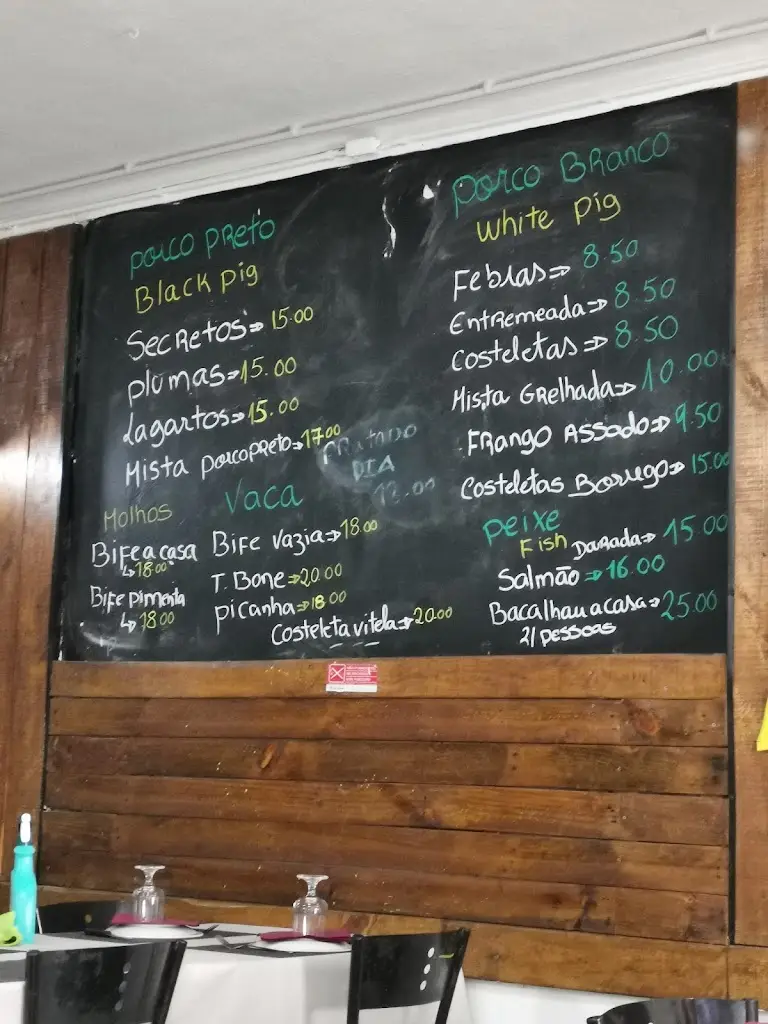 Porco Preto
Black pig
Secretos⇒ 15.00
plumas⇒15.00
Lagartos⇒15.00
Mista porco Preto⇒17.00
PRATO DO
DIA
12.00
Molhos
Bife a casa
↳18.00
Bife pimenta
↳18.00
Vaca
Bife Vazia⇒18.00
T. Bone⇒20.00
picanha⇒18.00
Costeleta vitela⇒20.00
Porco Branco
White Pig
Febras⇒ 8.50
Entremeada⇒8.50
Costeletas⇒8.50
Mista Grelhada⇒10.00
Frango Assado⇒9.50
Costeletas Borrego⇒15.00
Peixe
Fish
Darada⇒15.00
Salmão⇒16.00
Bacalhau a casa⇒25.00
2/pessoas